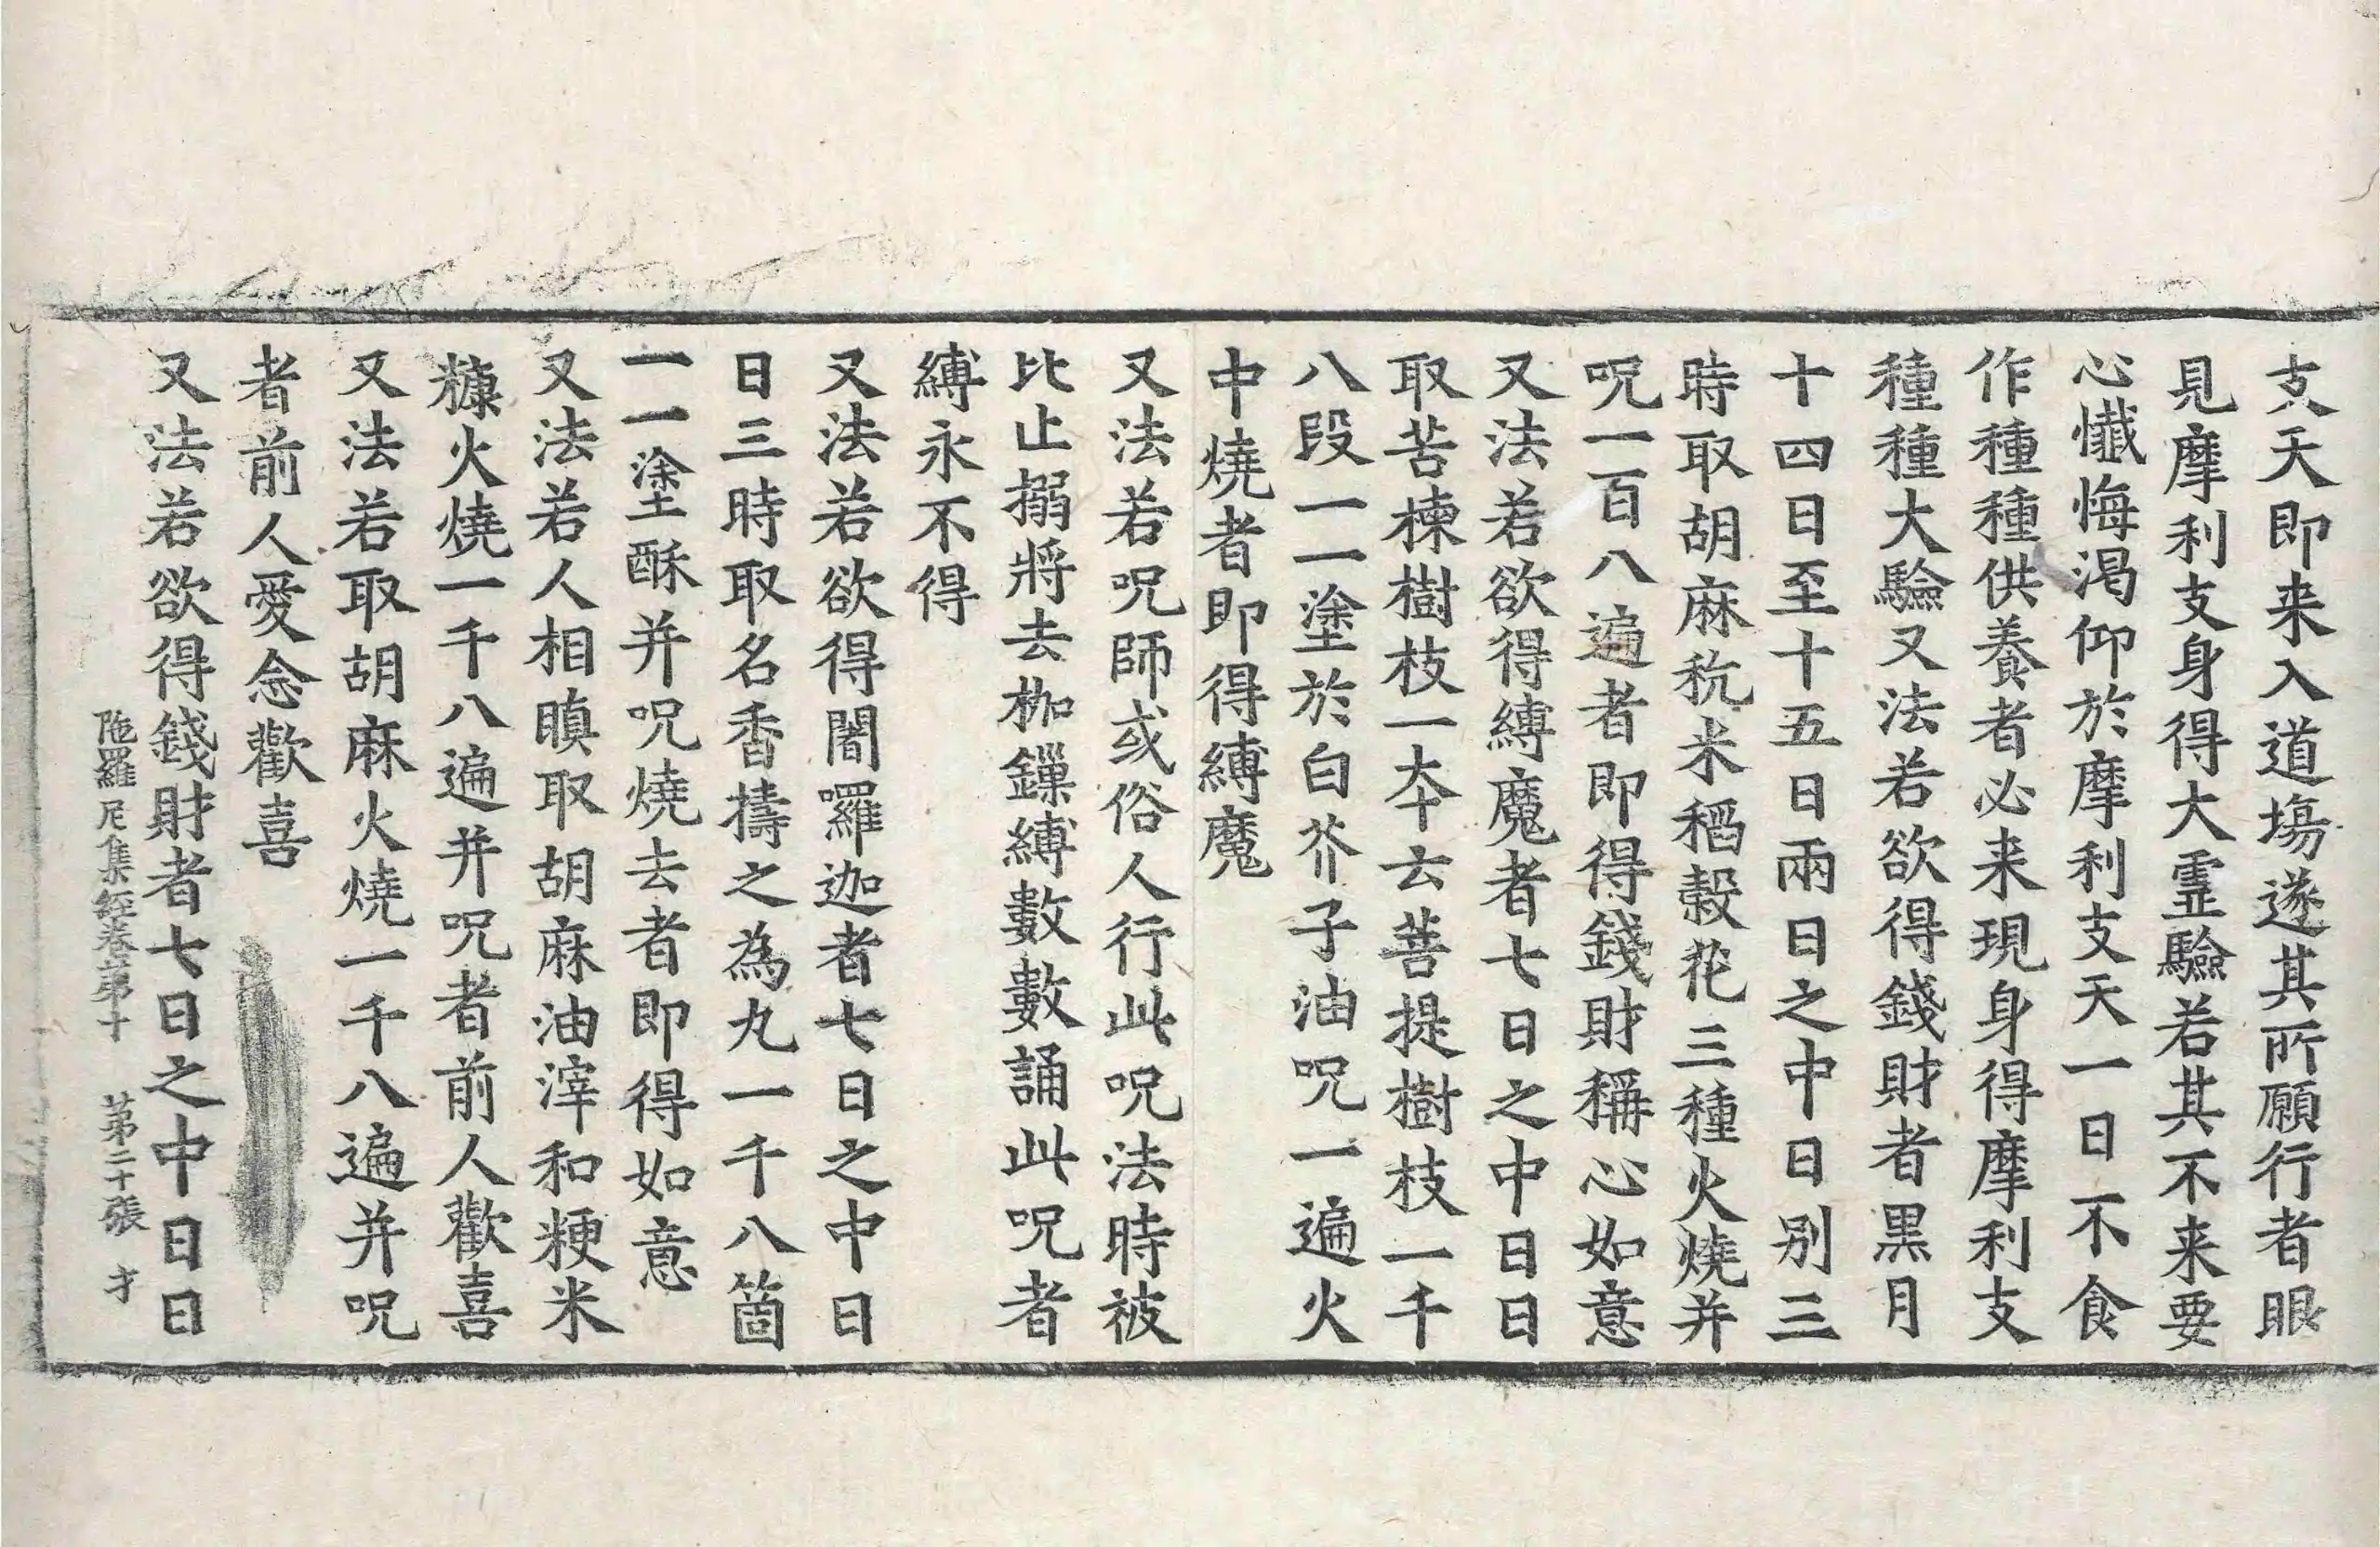 支天即来入道場遂其所願行者眼
見摩利支身得大霊驗若其不来要
心懺悔渴仰於摩利支天一日不食
作種種供養者必来現身得摩利支
種種大驗又法若欲得錢財者黒月
十四日至十五日兩日之中日別三
時取胡麻秔米稻穀花三種火燒并
呪一百八遍者即得錢財稱心如意
又法若欲得縛魔者七日之中日日
取苦楝樹枝一夲云菩提樹枝一千
八段一一塗於白芥子油呪一遍火
中燒者即得縛魔
又法若呪師或俗人行此呪法時被
比止搦將去枷鏁縛數數誦此呪者
縛永不得
又法若欲得闍囉迦者七日之中日
日三時取名香擣之為丸一千八箇
一一塗酥并呪燒去者即得如意
又法若人相瞋取胡麻油滓和粳米
糠火燒一千八遍并呪者前人歡喜
又法若取胡麻火燒一千八遍并呪
者前人愛念歡喜
又法若欲得錢財者七日之中日日
陁羅尼集經卷第十 苐二十張 才